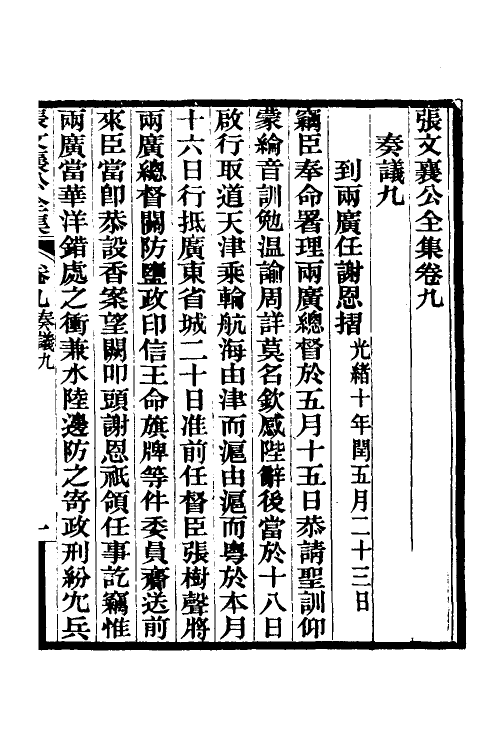 張文襄公全集卷九
奏議九
到兩廣任謝恩摺 光緒十年閏五月二十三日
竊臣奉命署理兩廣總督於五月十五日恭請聖訓仰
蒙綸音訓勉溫諭周詳莫名欽感陛辭後當於十八日
啟行取道天津乘輪航海由津而滬由滬而粵於本月
十六日行抵廣東省城二十日准前任督臣張樹聲將
兩廣總督關防鹽政印信王命旗牌等件委員齎送前
來臣當卽恭設香案望闕叩頭謝恩祇領任事訖竊惟
兩廣當華洋錯處之衝兼水陸邊防之寄政刑紛冗兵
張文襄公全集 卷九 奏議九 一